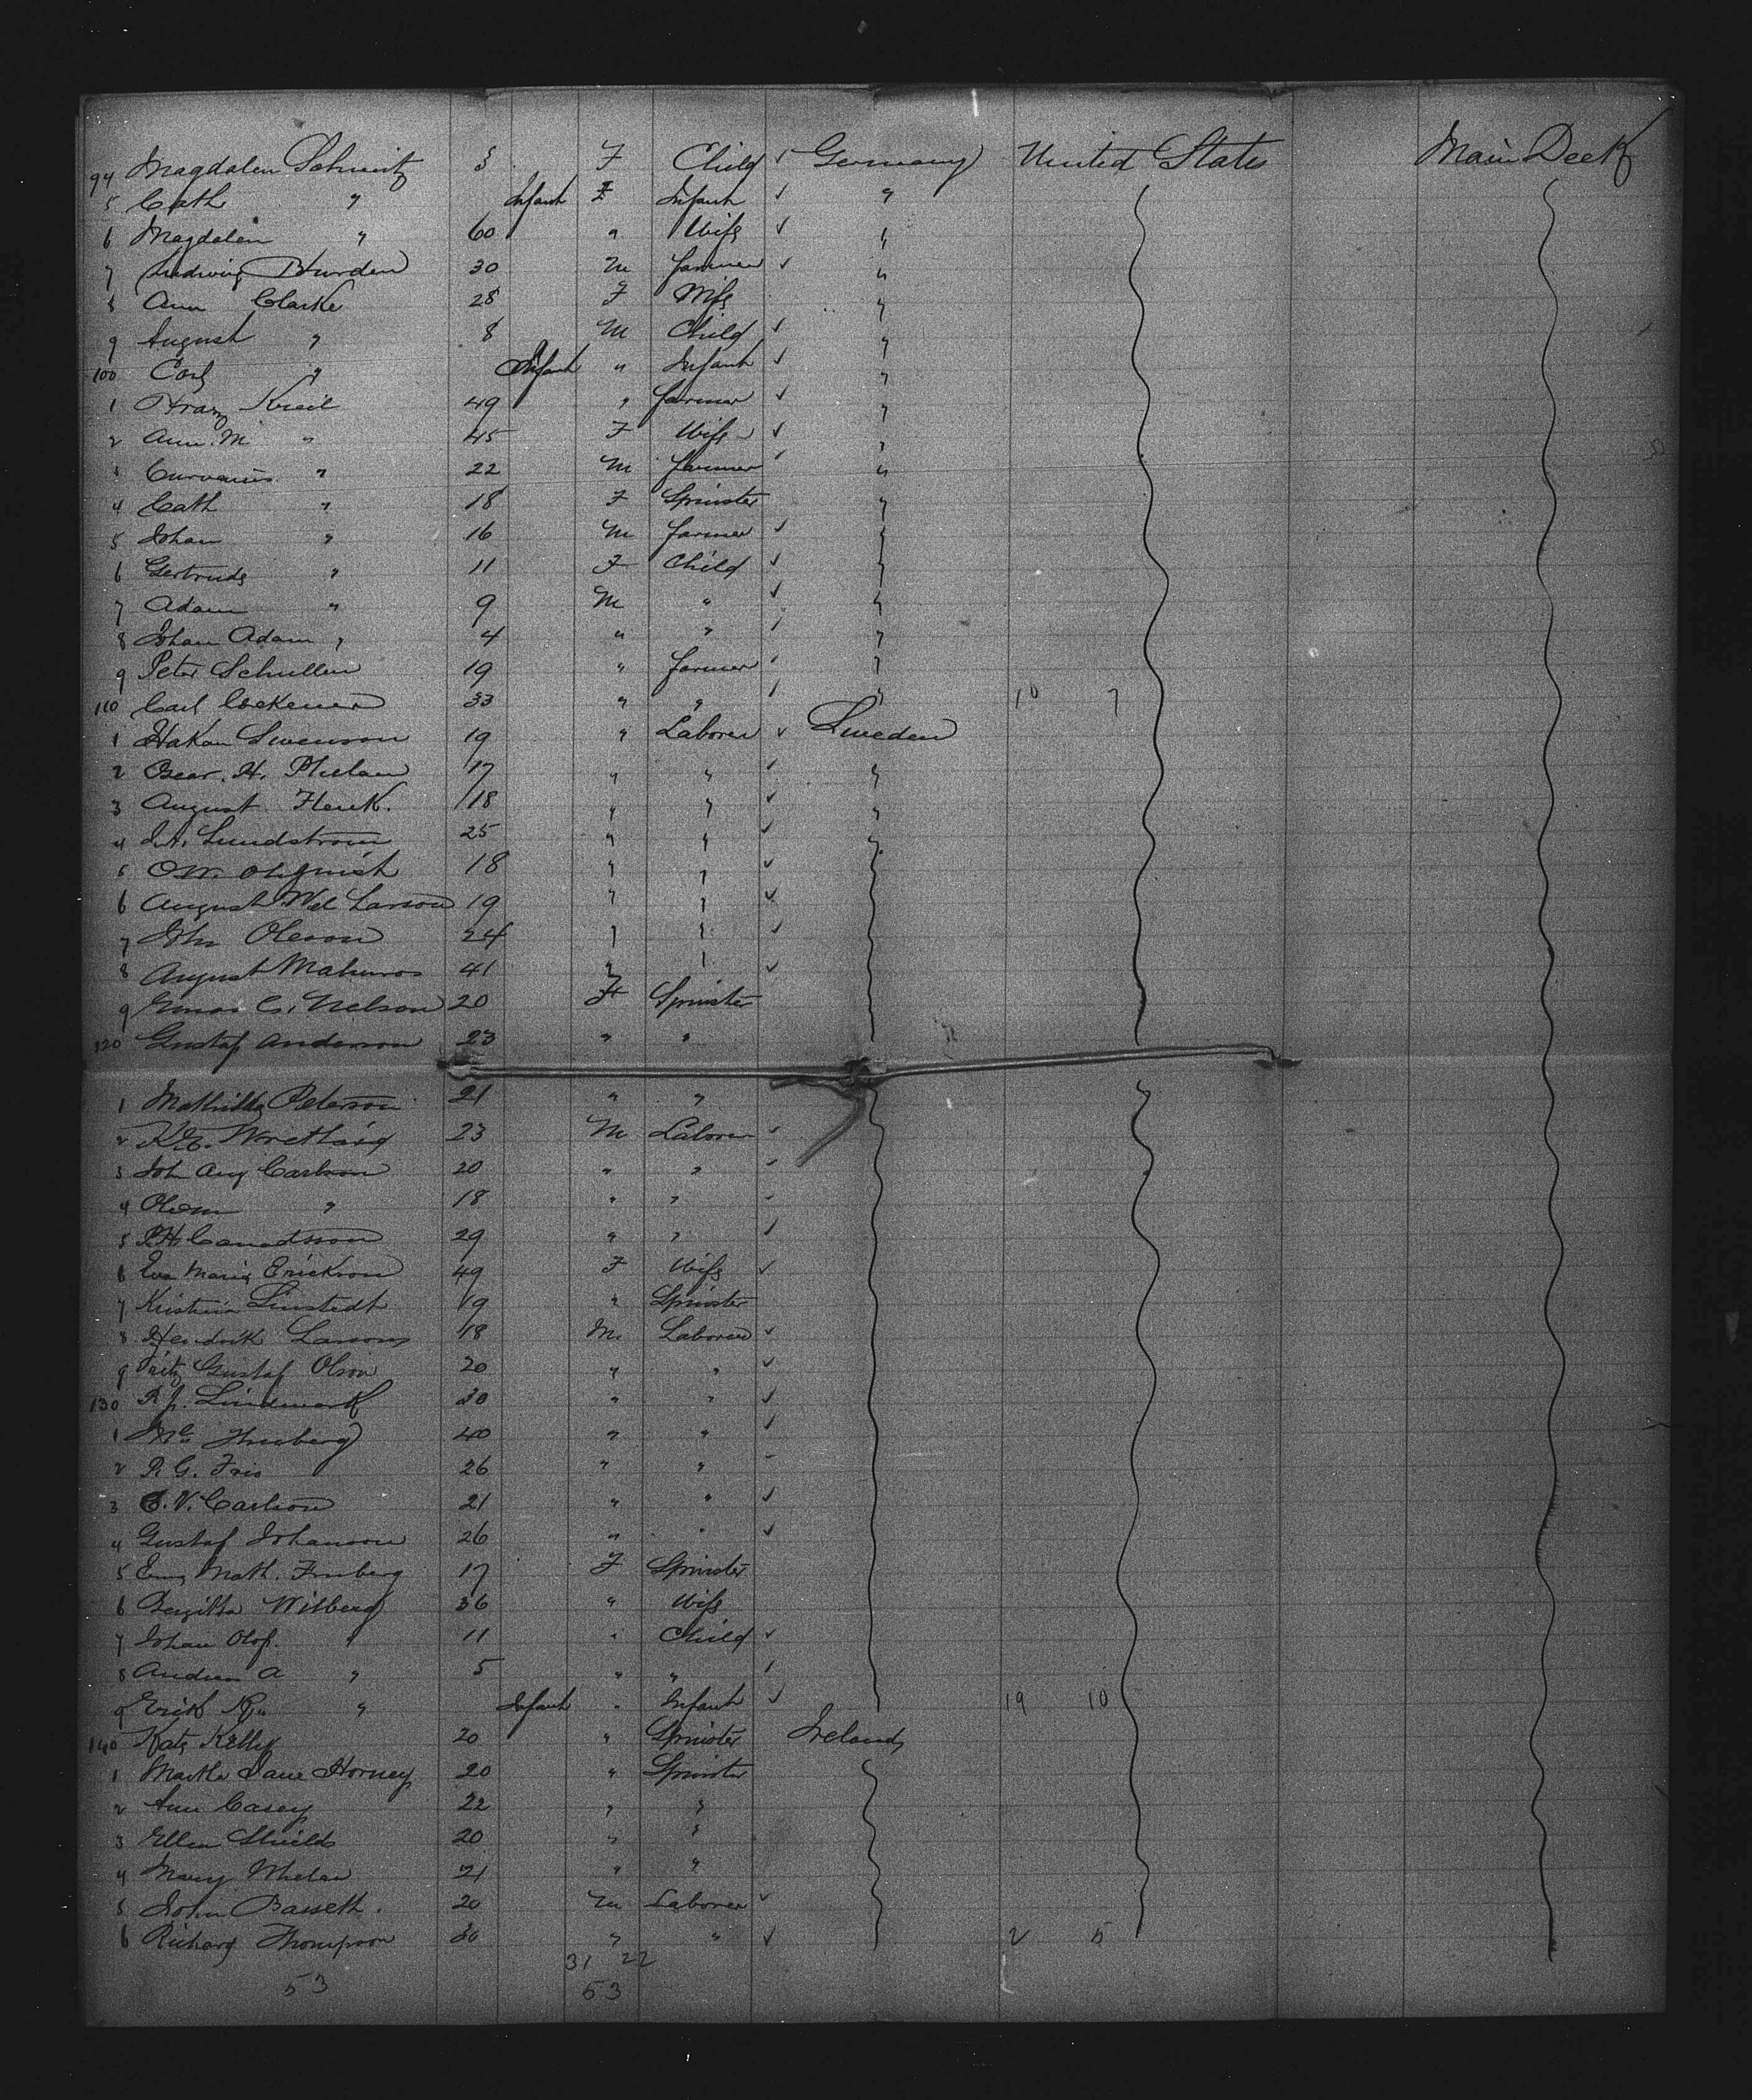 94 Magdalen Schmitz 3 F Child ✓ Germany United States Main Deck
5 Cath " Infant F Infant ✓ "
6 Magdalen " 60 " Wife ✓ "
7 Ludwig Burden 30 M farmer ✓ "
8 Ann Clarke 28 F Wife "
9 August " 8 M Child ✓ "
100 Carl " Infant " Infant ✓ "
1 Franz Kreil 49 " farmer ✓ "
2 Ann. M " 45 F Wife ✓ "
3 " 22 M farmer ✓ "
4 Cath " 18 F Spinster "
5 Johan " 16 M farmer ✓ "
6 Gertrude " 11 F Child ✓ "
7 Adam " 9 M " ✓ "
8 Johan Adam " 4 " " ✓ "
9 Peter Schullen 19 " farmer ✓ "
110 Carl 33 " " ✓ " 10 7
1 Hakan Swenson 19 " Laborer ✓ Sweden
2 Oscar. H. Phelan 17 " " ✓ "
3 August Flenk. 18 " " ✓ "
4 J.A. Lundstrom 25 " " ✓ "
5 O.W. Ohlquist 18 " " ✓
6 August Wel Larson 19 " " ✓
7 John Oleson 24 " " ✓
8 August 41 " " ✓
9 Emma C. Nelson 20 F Spinster
120 Gustaf Anderson 23 " "
1 Mathilda Peterson 21 " "
2 23 M Laborer ✓
3 Joh Aug Carlson 20 " " ✓
4 " 18 " " ✓
5 P.H. 29 " " ✓
6 Eva Maria Erickson 49 F Wife ✓
7 Kristina Linstedt 19 " Spinster
8 Hendrik Larsons 18 M. Laborer ✓
9 Fritz Gustaf Olson 20 " " ✓
130 P.J. Lindmark 30 " " ✓
1 40 " " ✓
2 P. G. Fris 26 " " ✓
3 C. V. Carlson 21 " " ✓
4 Gustaf Johanson 26 " " ✓
5 Math. 17 F Spinster
6 Wilberg 36 " Wife
7 Johan Olof. " 11 " Child ✓
8 A " 5 " " ✓
9 Erik " Infant " Infant ✓ 19 10
140 Kate Kelly 20 " Spinster Ireland
1 Martha Jane Horney 20 " Spinster
2 Ann Casey 22 " "
3 Ellen Shields 20 " "
4 Mary Whelan 21 " "
5 John Bassett. 20 M Laborer ✓
6 Richard Thompson 30 " " ✓ 2 5
31 22
53 53